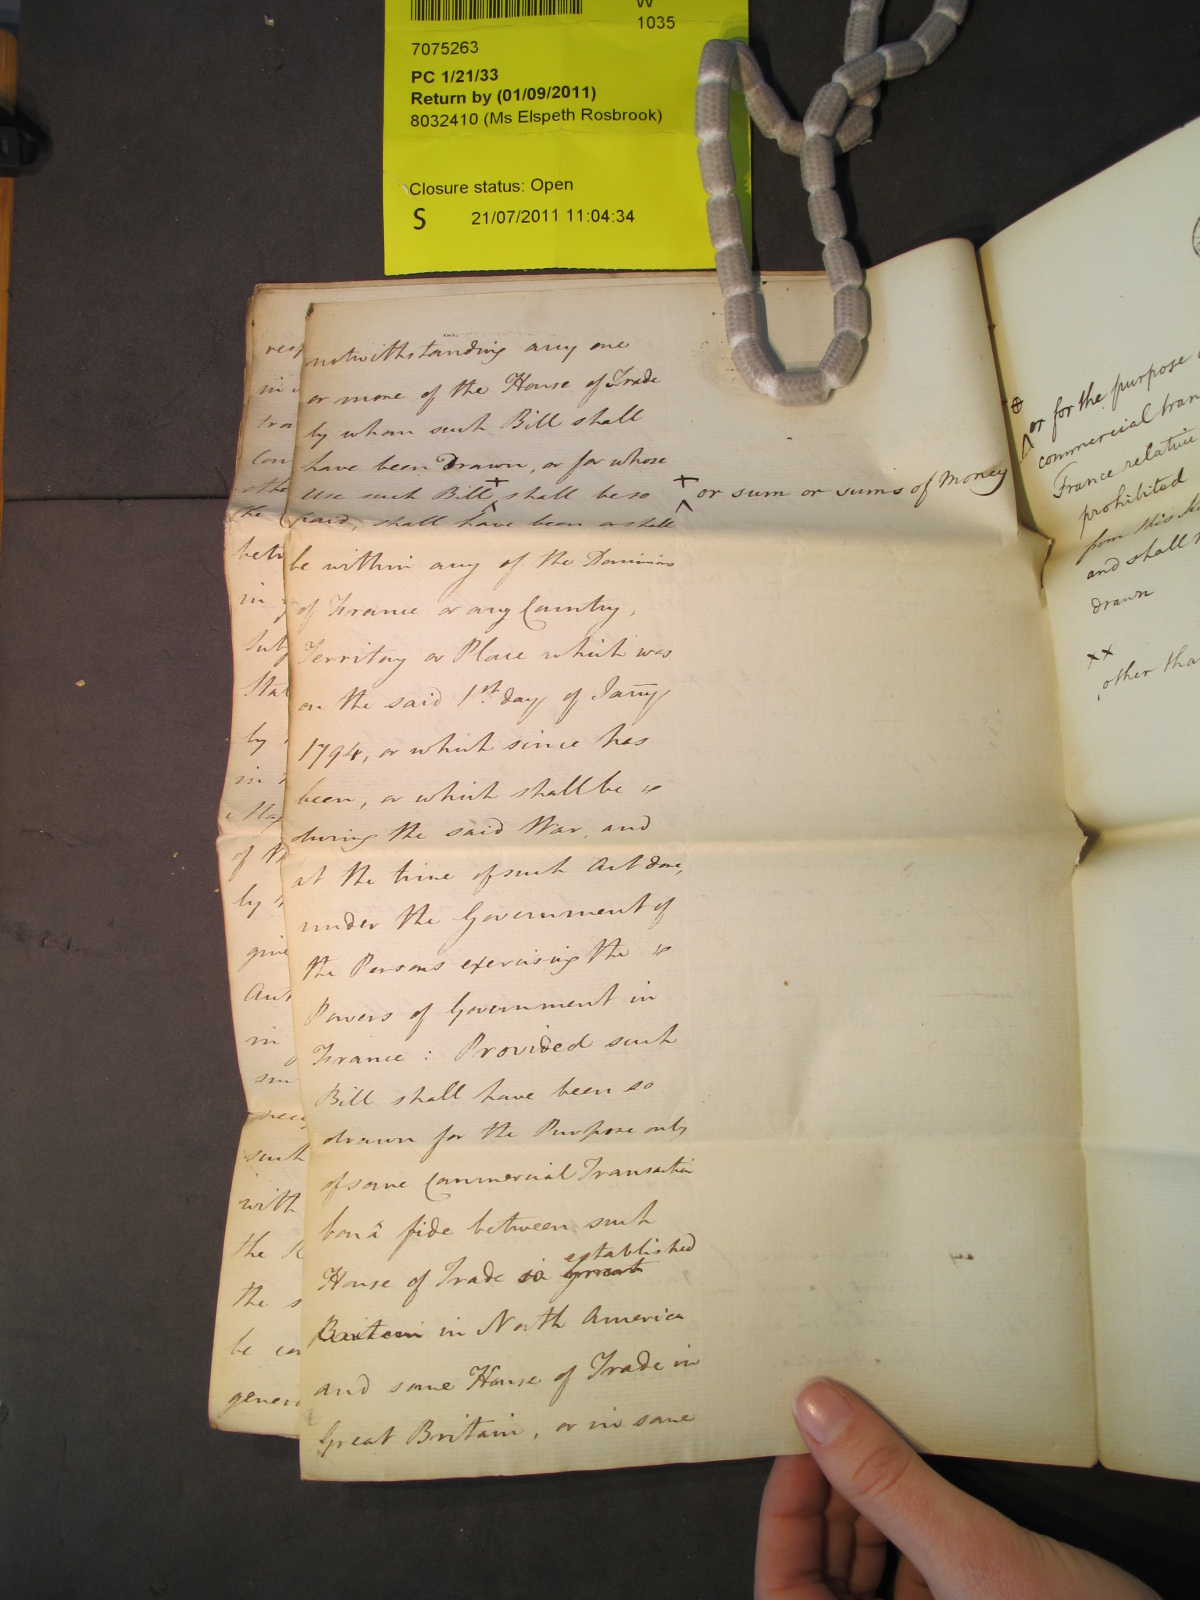 W
1035
7075263
PC 1/21/33
Return by (01/09/2011)
8032410 (Ms Elspeth Rosbrook)
Closure status: Open
S 21/07/2011 11:04:34
notwithstanding any one
or more of the House of Trade
by whom such Bill shall
have been Drawn, or for whose
Use such Bill + shall be so
+ or sum or sums of Money
paid, shall have been or shall
be within any of the Dominions
of France or any Country,
Territory or Place which was
on the said 1st day of Jany
1794, or which since has
been, or which shall be
during the said War, and
at the time of such Act done,
under the Government of
the Persons exercising the
Powers of Government in
France : Provided such
Bill shall have been so
drawn for the Purpose only
of some Commercial Transaction
bonâ fide between such
House of Trade in Great established
Britain in North America
and some House of Trade in
Great Britain, or in some
in
by
in
of
by
in
such
with
the
the s
be
⊕
or for the purpose
commercial tran
France relative
prohibited
from this
and shall
drawn
xx
other tha